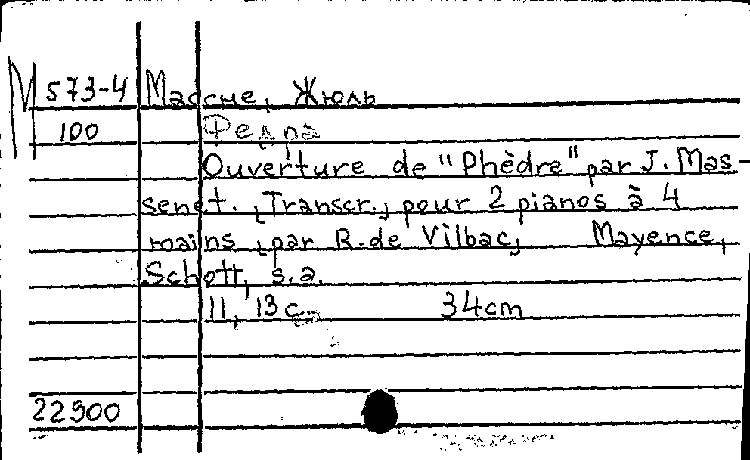 М 573-4 Массне, Жюль
100 Федра
Ouverture de "Phèdre" par J. Mas-
senet. [Transcr.] pour 2 pianos à 4
mains [par R. de Vilbac] Mayence,
Schott, s.a.
11, 13 c. 34cm
22900